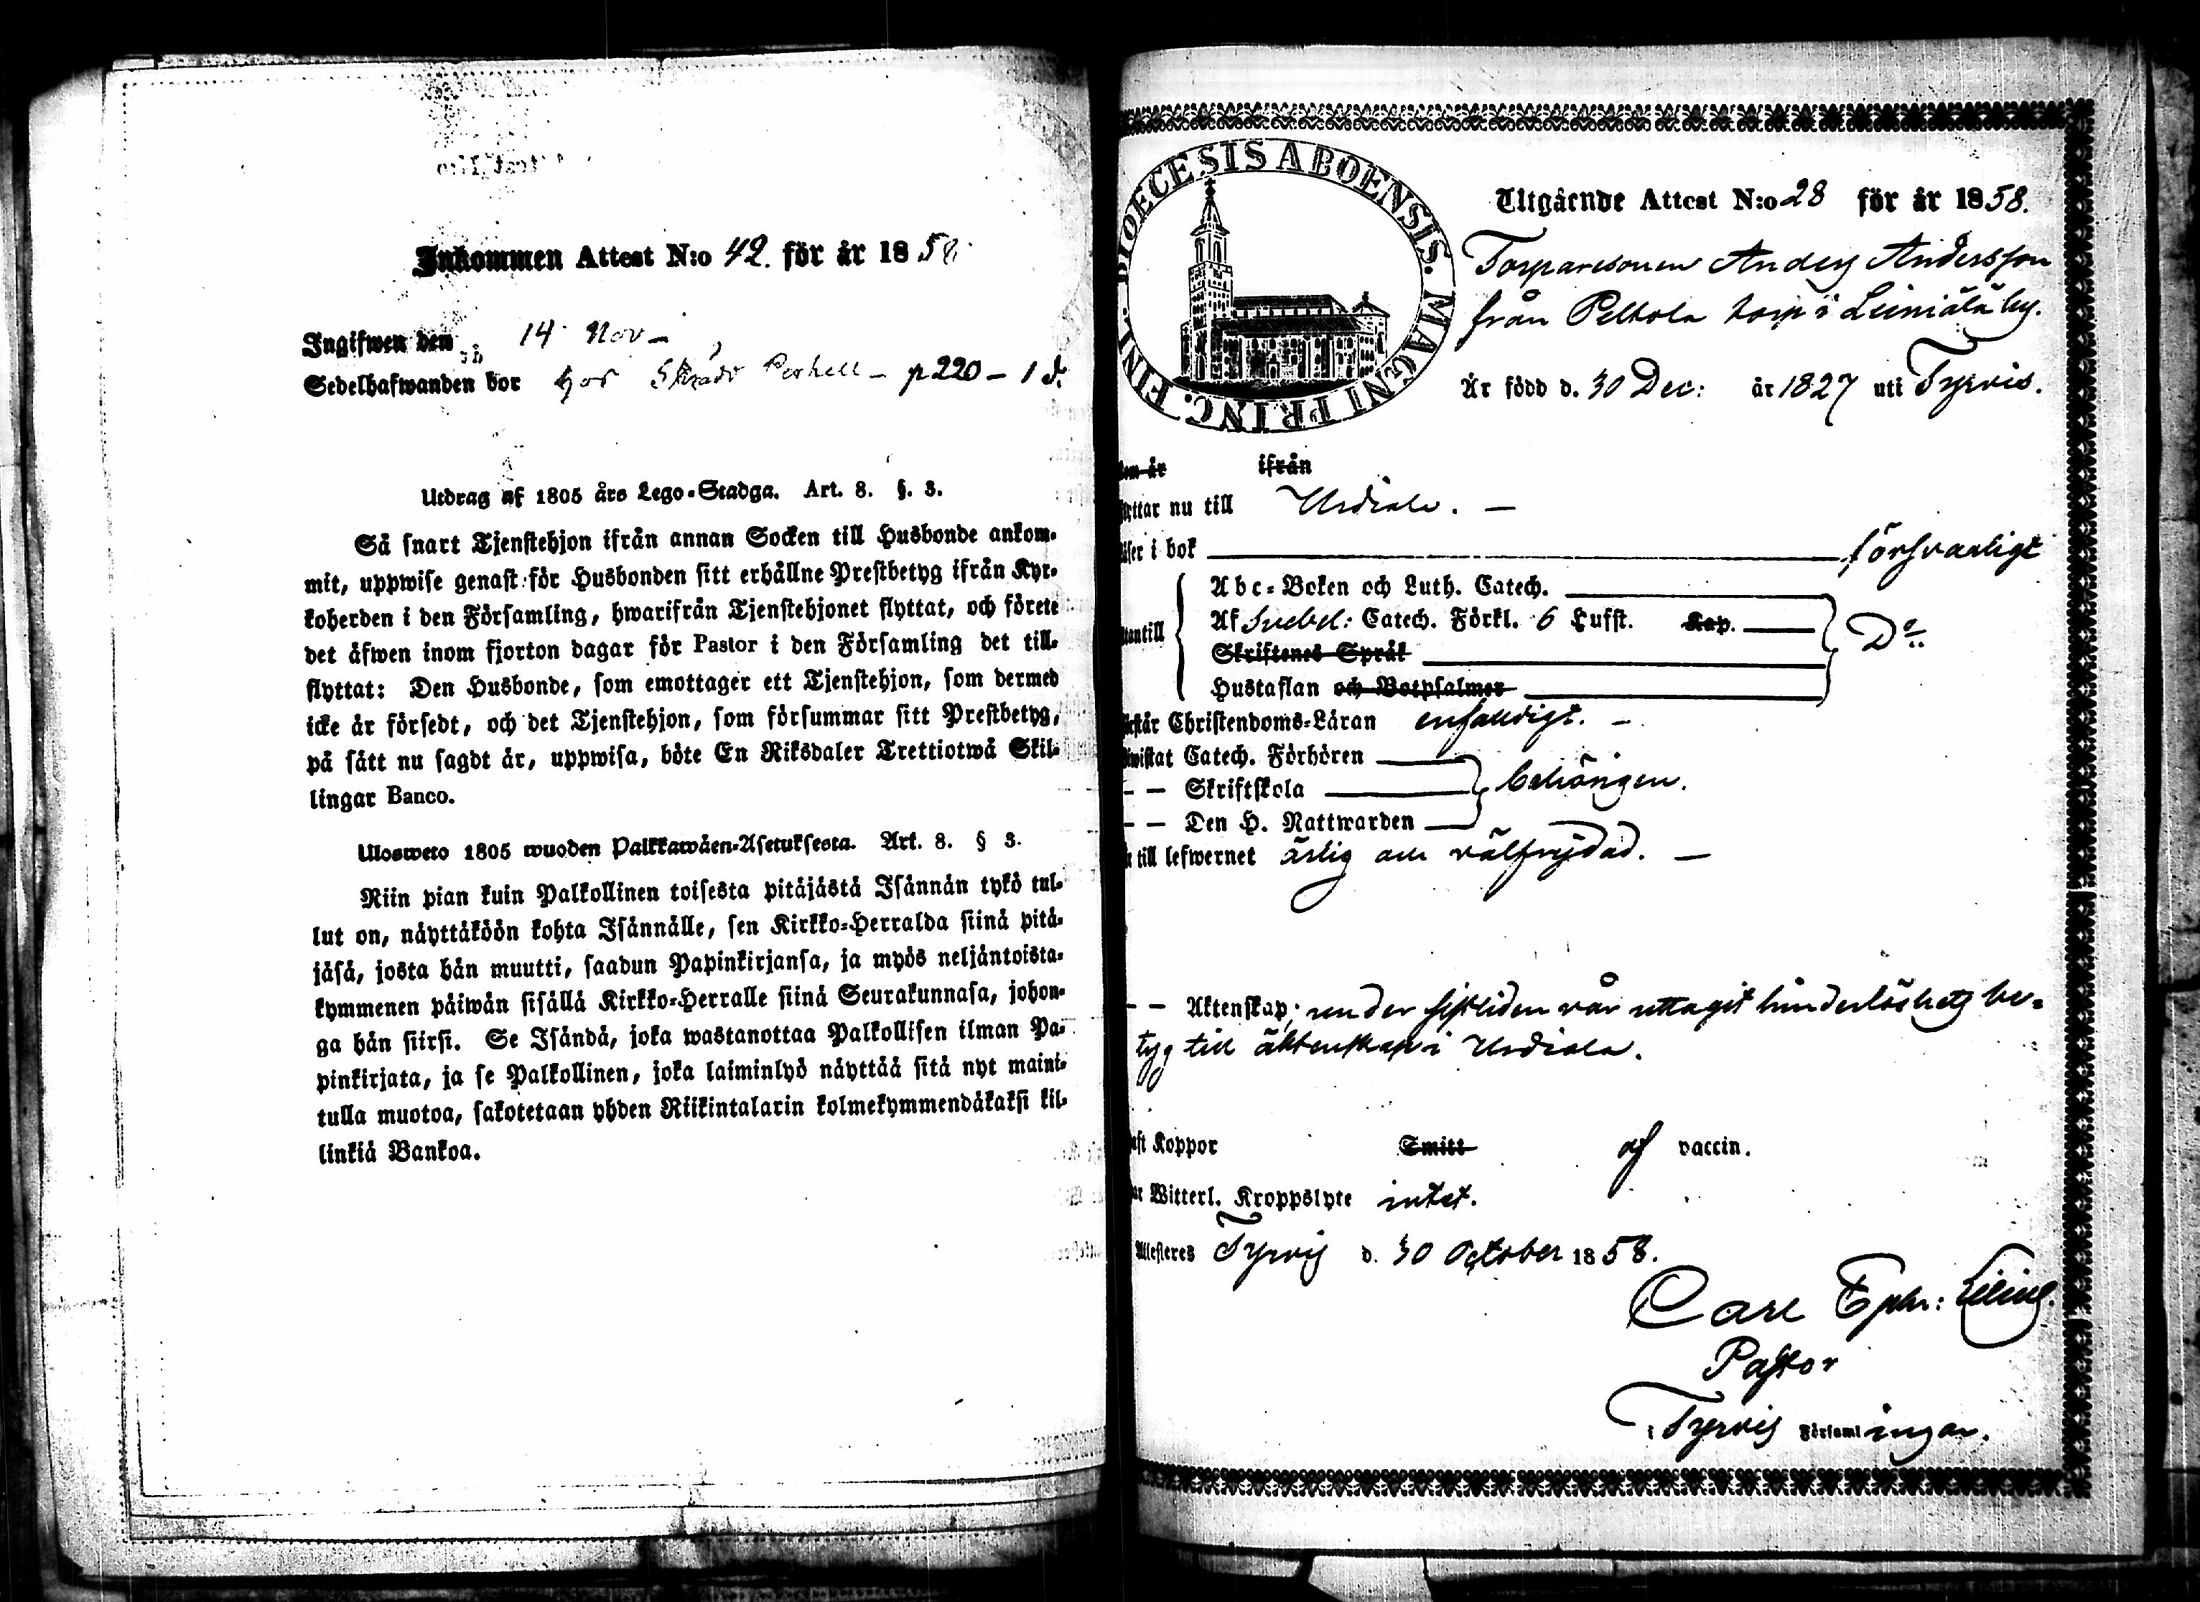 Inkommen Attest N:o 42. för år 1858.
Ingifwen den 14 Nov
Sedelhafwanden bor hos p 220 – 1 d.
Utdrag af 1805 års Lego-Stadga. Art. 8. §. 3.
Så snart Tjenstehjon ifrån annan Socken till Husbonde ankom-
mit, uppwise genast för Husbonden sitt erhållne Prestbetyg ifrån Kyr-
koherden i den Församling, hwarifrån Tjenstehjonet flyttat, och förete
det äfwen inom fjorton dagar för Pastor i den Församling det till-
flyttat: Den Husbonde, som emottager ett Tjenstehjon, som dermed
icke är försedt, och det Tjenstehjon, som försummar sitt Prestbetyg,
på sätt nu sagdt är, uppwisa, böte En Riksdaler Trettiotwå Skil-
lingar Banco.
Ulosweto 1805 wuoden Palkkawäen-Asetuksesta. Art. 8. § 3.
Niin pian kuin Palkollinen toisesta pitäjästä Isännän tykö tul-
lut on, näyttäköön kohta Isännälle, sen Kirkko-Herralda siinä pitä-
jäsä, josta hän muutti, saadun Papinkirjansa, ja myös neljäntoista-
kymmenen päiwän sisällä Kirkko-Herralle siinä Seurakunnasa, johon-
ga hän siirsi. Se Isändä, joka wastanottaa Palkollisen ilman Pa-
pinkirjata, ja se Palkollinen, joka laiminlyö näyttää sitä nyt maini-
tulla muotoa, sakotetaan yhden Riikintalarin kolmekymmendäkaksi kil-
linkiä Bankoa.
DIOECESIS ABOENSIS. MAGNI PRINC. FINL.
Utgående Attest N:o 28 för år 1858.
Torparesonen Anders Andersson
från Peltola torp i Leiniälä by.
Är född d. 30 Dec: år 1827 uti Tyrvis.
som är ifrån
flyttar nu till Urdiala. –
läser i bok försvarligt
Abc-Boken och Luth. Catech.
utantill Af Svebel: Catech. Förkl. 6 Hufst. Kap. D:o
Skriftenes Språk
Hustaflan och Botpsalmer
förstår Christendoms-Läran enfaldigt. –
bewistat Catech. Förhören
– – Skriftskola behörigen.
– – Den H. Nattwarden
till lefwernet ärlig och välfrejdad. –
– – Äktenskap; under sistliden vår uttagit hinderlöshets be-
tyg till äktenskap i Urdiala.
haft Koppor Smitt af vaccin.
har Witterl. Kroppslyte intet.
Attesteres Tyrvis d. 30 October 1858.
Carl Ephr:
Pastor
i Tyrvis Församlingar.